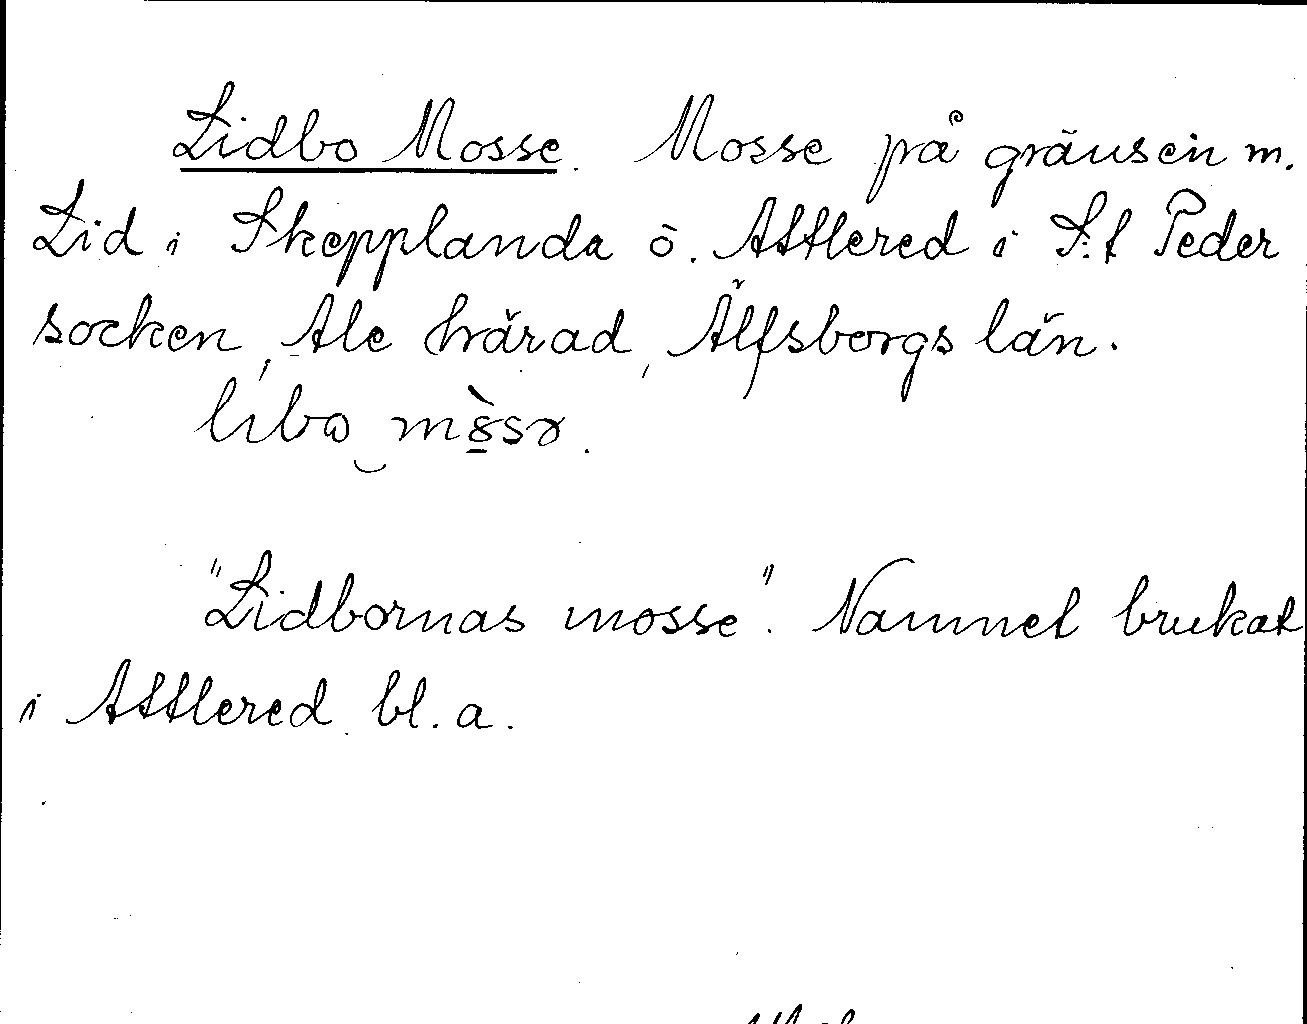 Lidbo Mosse. Mosse på gränsen m.
Lid i Skepplanda o. Attlered i S:t Peder
socken, Ale härad, Älfsborgs län.
"Lidbornas mosse". Namnet brukat
i Attlered bl. a.